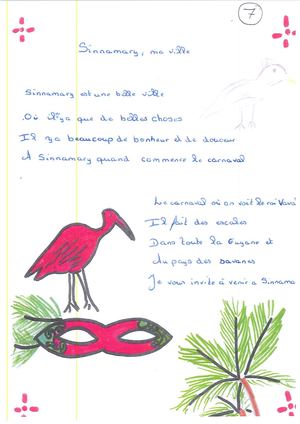 7
Sinnamary, ma ville
Sinnamary est une belle ville
Où il y a que de belles choses
Il y a beaucoup de bonheur et de douceur
A Sinnamary quand commence le carnaval
Le carnaval où on voit le roi Vava
Il fait des escales
Dans toute la Guyane et
Au pays des savanes
Je vous invite à venir à Sinnama